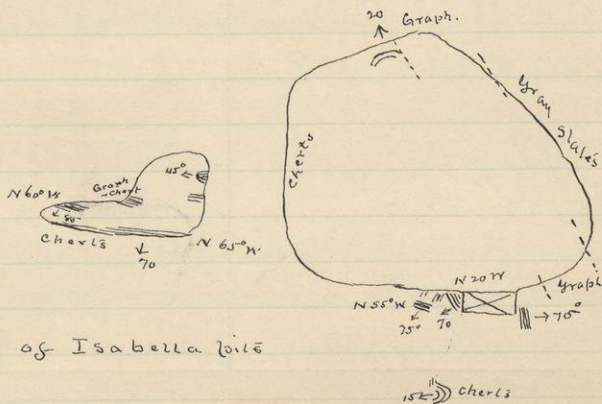 20
Graph.
Gray
Slates
Cherts
45°
Graph
Chert
N 60° W
80
Cherts
70
N 65° W.
N 20 W
Graph
N 55° W
75°
70
70°
of Isabella
15
Cherts